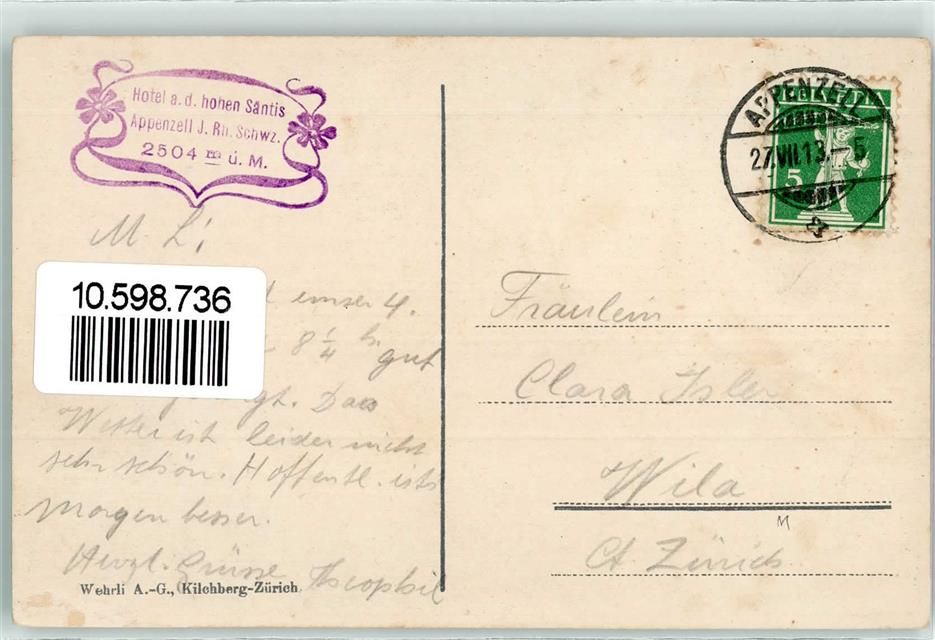 Hotel a. d. hohen Säntis
Appenzell J. Rh. Schwz.
2504 m ü. M.
APPENZELL
27.VII.13.–5
5
M. L.
10.598.736
unser 4.
8 1/4 h. gut
Das
Wetter ist leider nicht
sehr schön. Hoffentl. ists
morgen besser.
Herzl. Grüsse Theophil
Wehrli A.-G., Kilchberg-Zürich
Fräulein
Clara Isler
Wila
M
Ct. Zürich